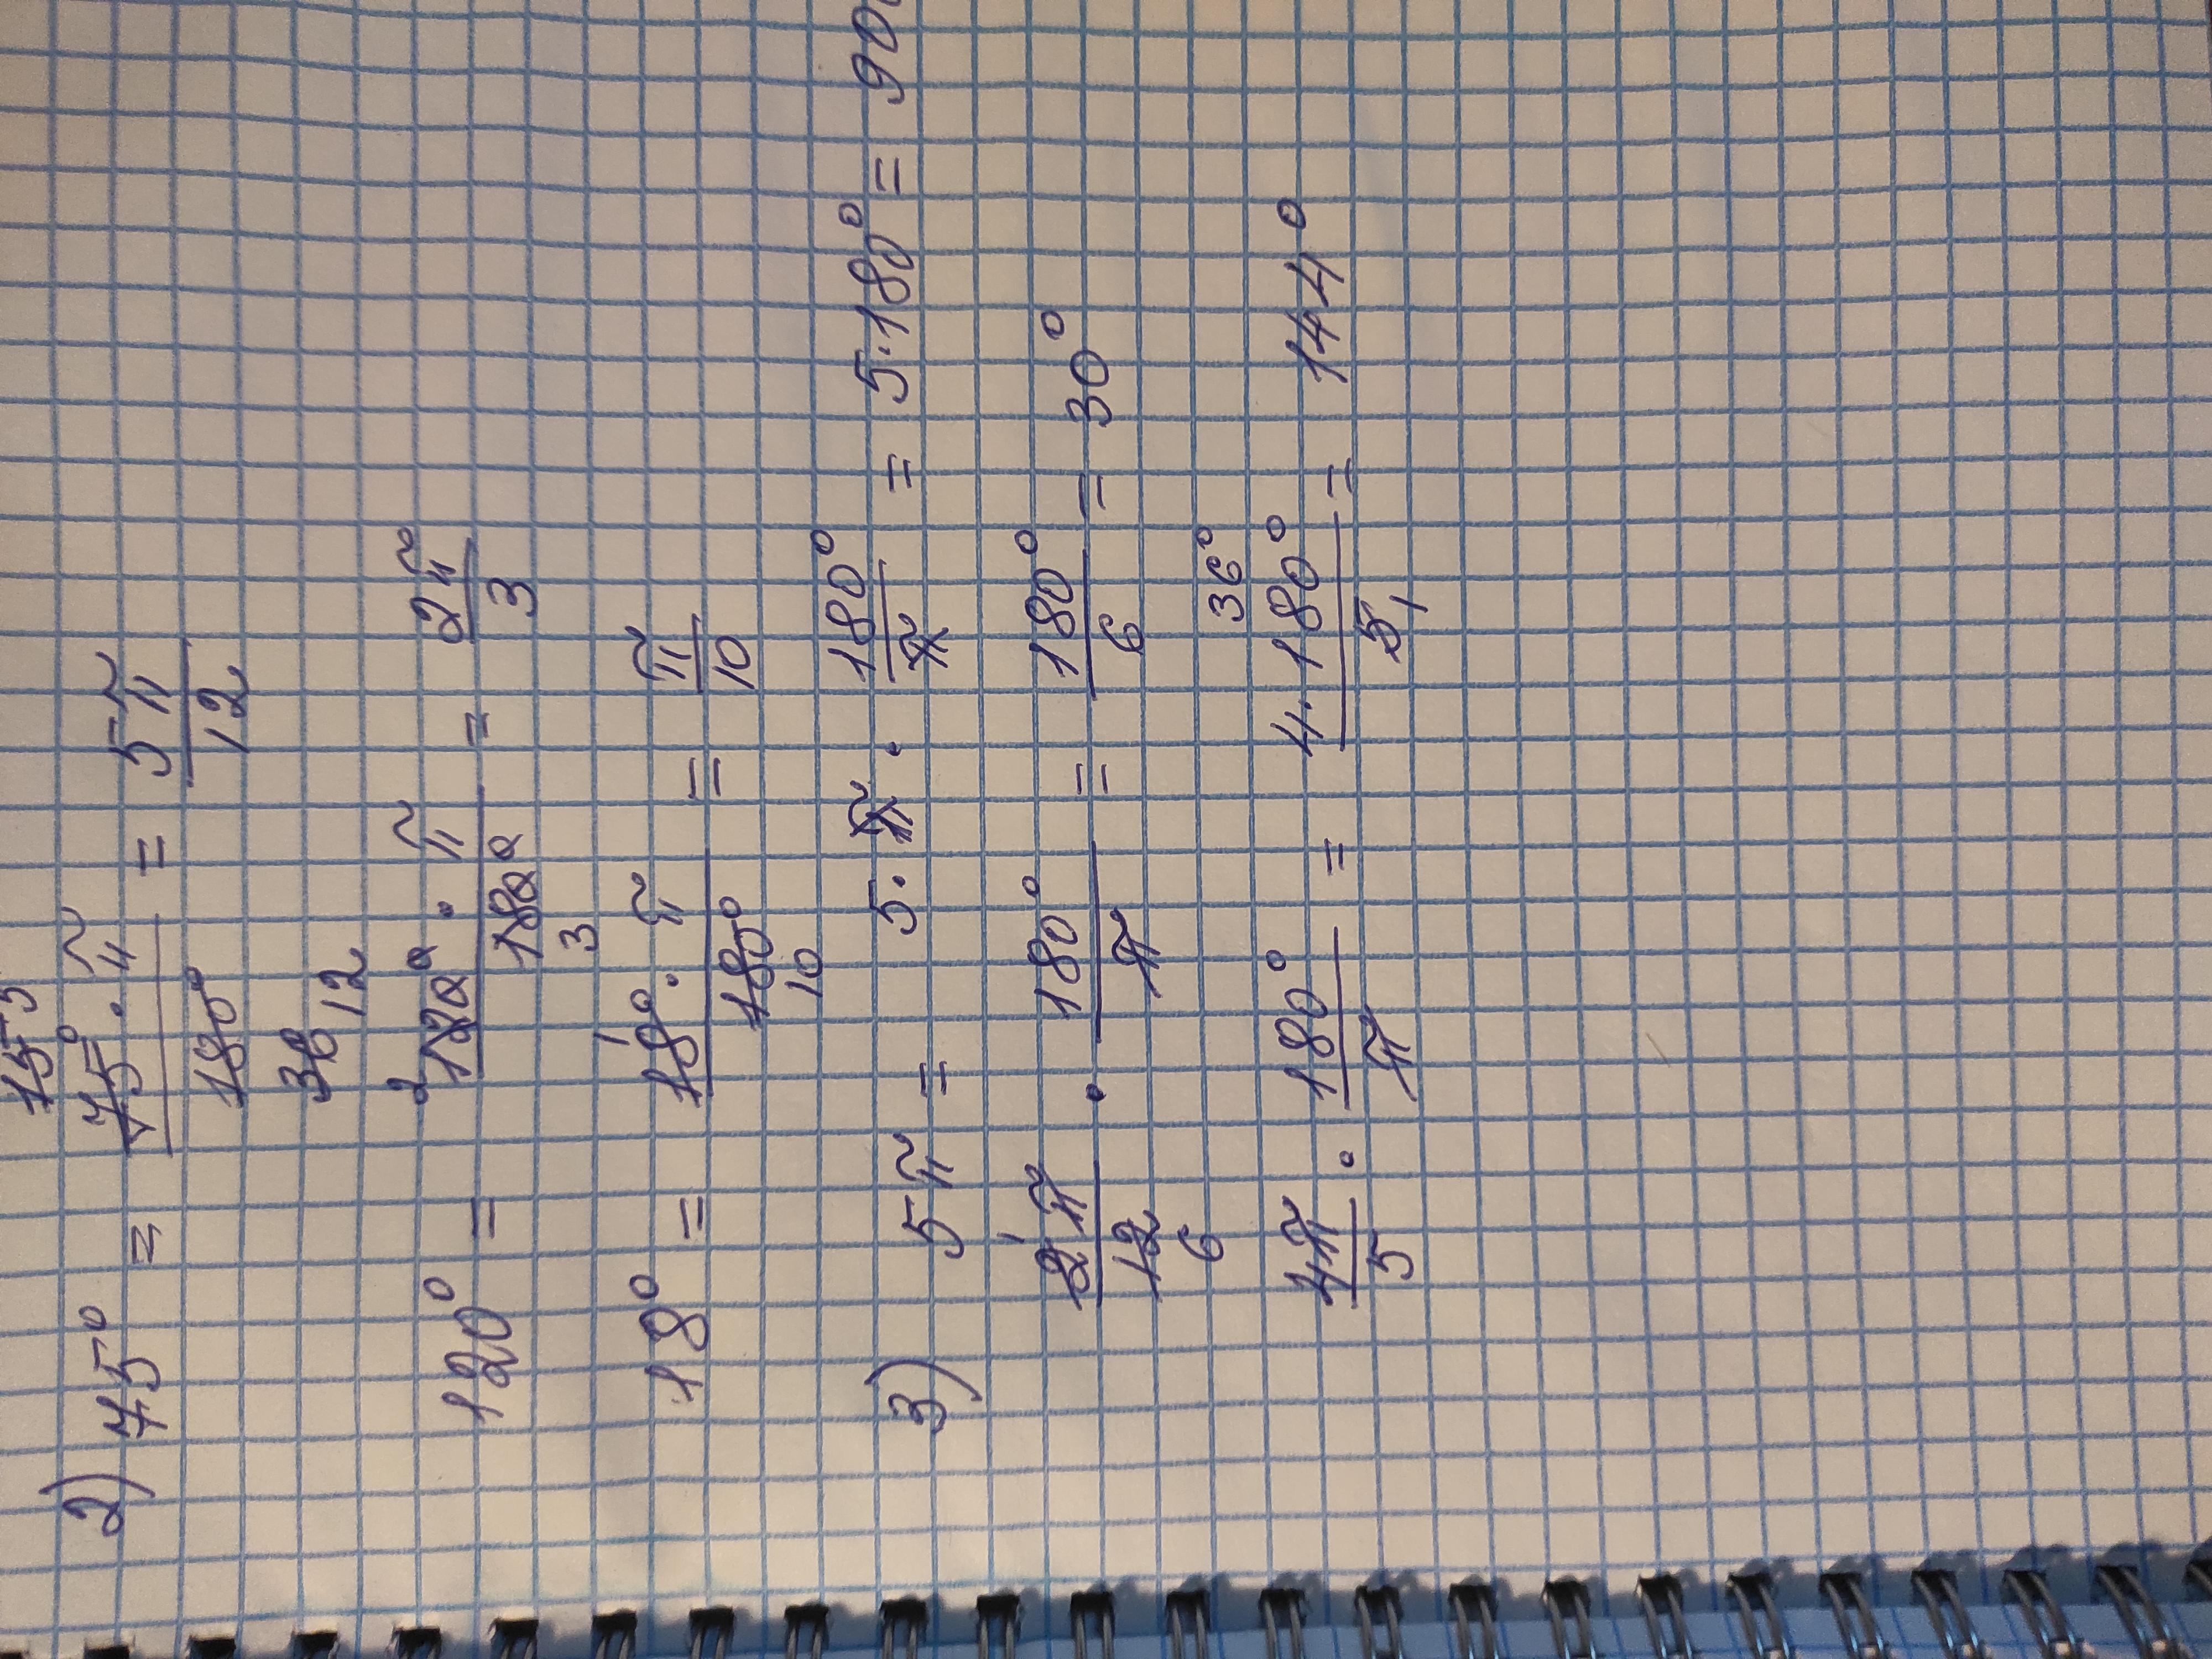 15 5
2) 75° = 75° · π / 180° = 5π / 12
36 12
120° = 2 120° · π / 180° 3 = 2π / 3
18° = 1 18° · π / 180° 10 = π / 10
3) 5π = 5 · π · 180° / π = 5 · 180° = 90
1 2π / 12 6 · 180° / π = 180° / 6 = 30°
36°
4π / 5 · 180° / π = 4 · 180° / 5 1 = 144°